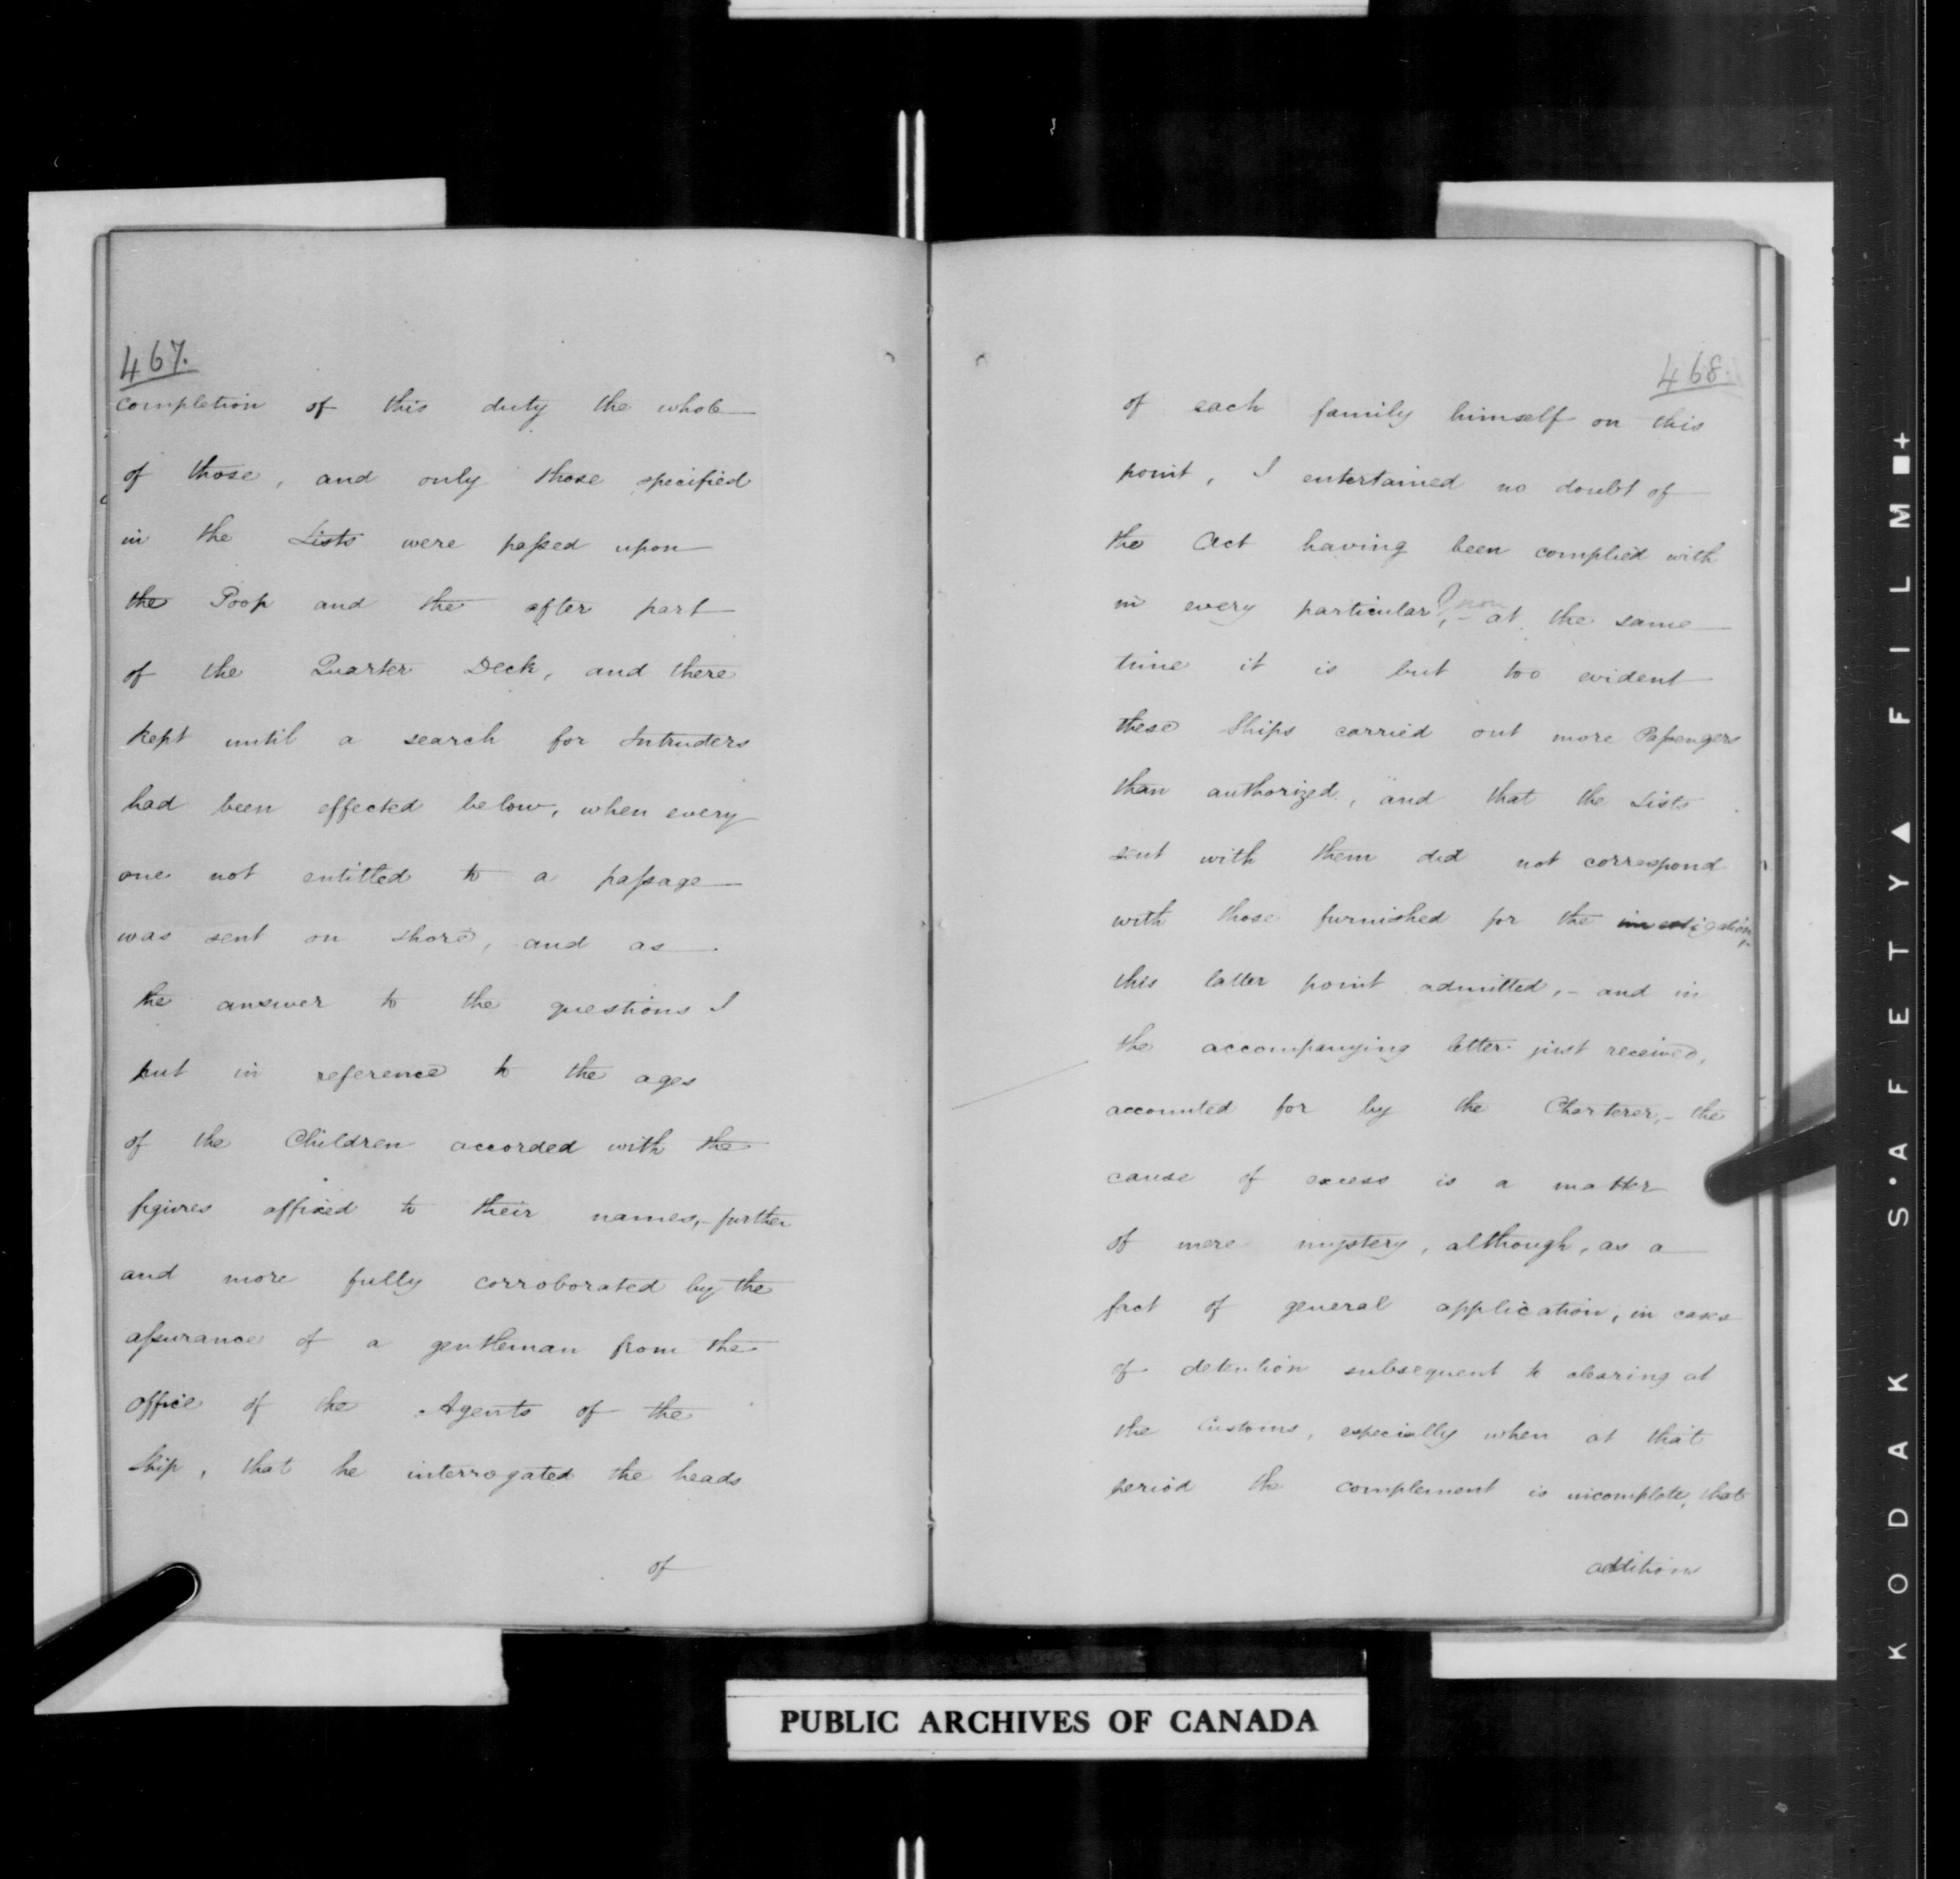 467.
completion of this duty the whole
of those, and only those specified
in the Lists were passed upon
the Poop and the after part
of the Quarter Deck, and there
kept until a search for Intruders
had been effected below, when every
one not entitled to a passage
was sent on shore, and as
the answer to the questions I
put in reference to the ages
of the Children accorded with the
figures affixed to their names,- further
and more fully corroborated by the
assurance of a gentleman from the
office of the Agents of the
Ship, that he interrogated the heads
of
468.
of each family himself on this
point, I entertained no doubt of
the Act having been complied with
in every particular,- at the same
time it is but too evident
these Ships carried out more Passengers
than authorized, and that the Lists
sent with them did not correspond
with those furnished for the investigation,-
this latter point admitted,- and in
the accompanying letter just received,
accounted for by the Charterer,- the
cause of excess is a matter
of mere mystery, although, as a
fact of general application, in cases
of detention subsequent to clearing at
the Customs, especially when at that
period the complement is incomplete, that
addition
PUBLIC ARCHIVES OF CANADA
KODAK S·AFETY▲FILM■+